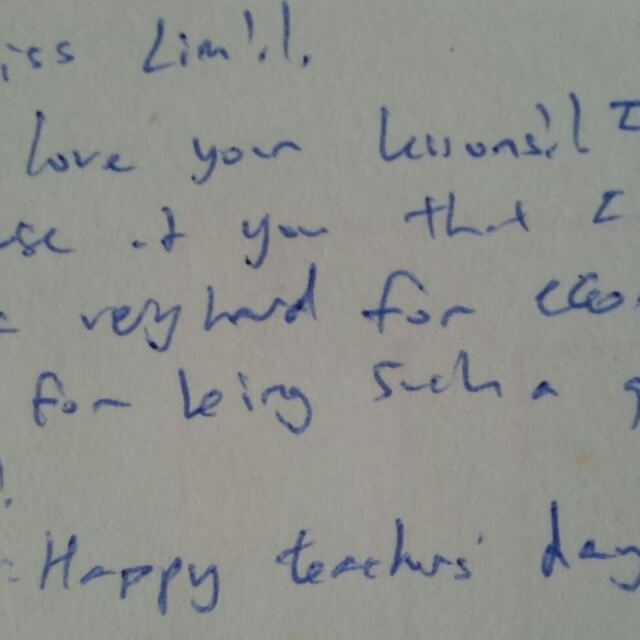 iss Lim!!.
love your lessons!! I
use of you that I
very hard for econ
for being such a g
!
Happy teachers' day